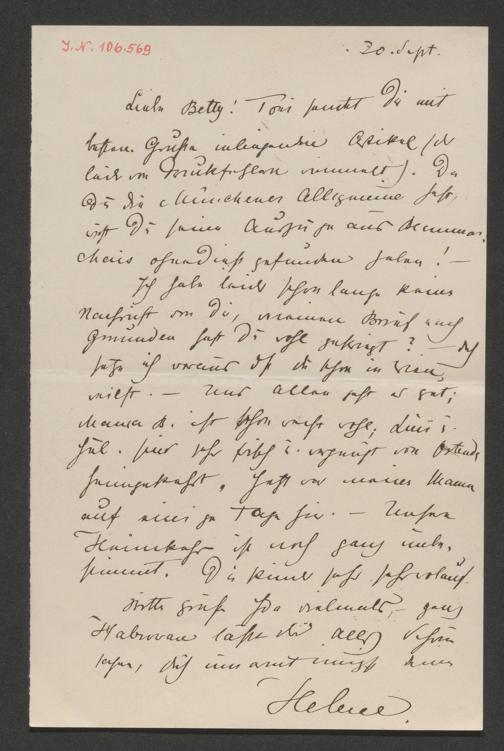 I.N. 106.569
20. Sept.
Liebe Betty! Toni sendet Dir mit
besten Grüßen inliegenden Artikel (der
leider von Druckfehlern wimmelt). Da
Du die Münchener Allgemeine hast,
wirst Du seine Auszüge aus
ohnedieß gefunden haben! —
Ich habe leider schon lange keine
Nachricht von Dir, meinen Brief nach
Gmunden hast Du wohl gekriegt? — Ich
setze ich voraus dß Du schon in Wien
weilst. — Uns allen geht es gut;
Mama B. ist schon recht wohl;
sind sehr frisch u. vergnügt von Ostende
heimgekehrt. Jetzt war meine Mama
auf einige Tage hier. — Unsere
Heimkehr ist noch ganz unbe-
stimmt.
Bitte grüße Ida vielmals, — ganz
Habrovan läßt Dir alles Schöne
sagen, Dich umarmt innigst Deine
Helene.